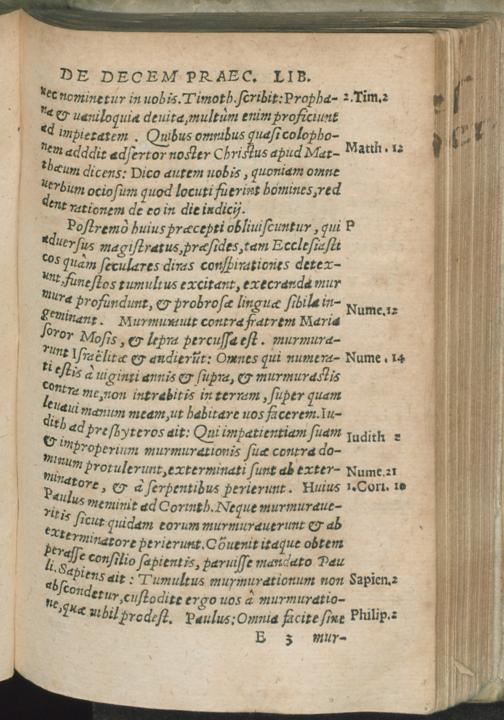 DE DECEM PRAEC. LIB.
nec nominetur in uobis. Timoth. scribit: Propha- 2.Tim.2
na & uaniloquia deuita, multùm enim proficiunt
ad impietatem. Quibus omnibus quasi colopho-
nem adddit adsertor noster Christus apud Mat- Matth. 12
thæum dicens: Dico autem uobis, quoniam omne
uerbum ociosum quod locuti fuerint homines, red
dent rationem de eo in die iudicij.
Postremò huius præcepti obliuiscuntur, qui P
aduersus magistratus, præsides, tam Ecclesiasti
cos quàm seculares diras conspirationes detex-
unt, funestos tumultus excitant, execranda mur
mura profundunt, & probrosæ linguæ sibila in-
geminant. Murmurauit contra fratrem Maria Nume.12
soror Mosis, & lepra percussa est. murmura-
runt Israëlitæ & audierūt: Omnes qui numera- Nume. 14
ti estis à uiginti annis & supra, & murmurastis
contra me, non intrabitis in terram, super quam
leuaui manum meam, ut habitare uos facerem. Iu-
dith ad presbyteros ait: Qui impatientiam suam Iudith 2
& improperium murmurationis suæ contra do-
minum protulerunt, exterminati sunt ab exter- Nume.21
minatore, & à serpentibus perierunt. Huius 1.Cori. 10
Paulus meminit ad Corinth. Neque murmuraue-
ritis sicut quidam eorum murmurauerunt & ab
exterminatore perierunt. Cōuenit itaque obtem
perasse consilio sapientis, paruisse mandato Pau
li. Sapiens ait: Tumultus murmurationum non Sapien.2
abscondetur, custodite ergo uos à murmuratio-
ne, quæ nihil prodest. Paulus: Omnia facite sine Philip.2
E 3 mur-